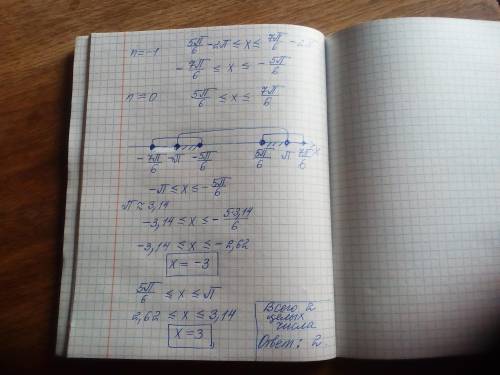 n=-1 5π/6 -2π ≤ x ≤ 7π/6 -2π
-7π/6 ≤ x ≤ -5π/6
n=0 5π/6 ≤ x ≤ 7π/6
-7π/6 -π -5π/6 5π/6 π 7π/6 x
-π ≤ x ≤ -5π/6
π ≈ 3,14
-3,14 ≤ x ≤ -5·3,14/6
-3,14 ≤ x ≤ -2,62
x = -3
5π/6 ≤ x ≤ π
2,62 ≤ x ≤ 3,14
x = 3
Всего 2
целых
числа
Ответ: 2